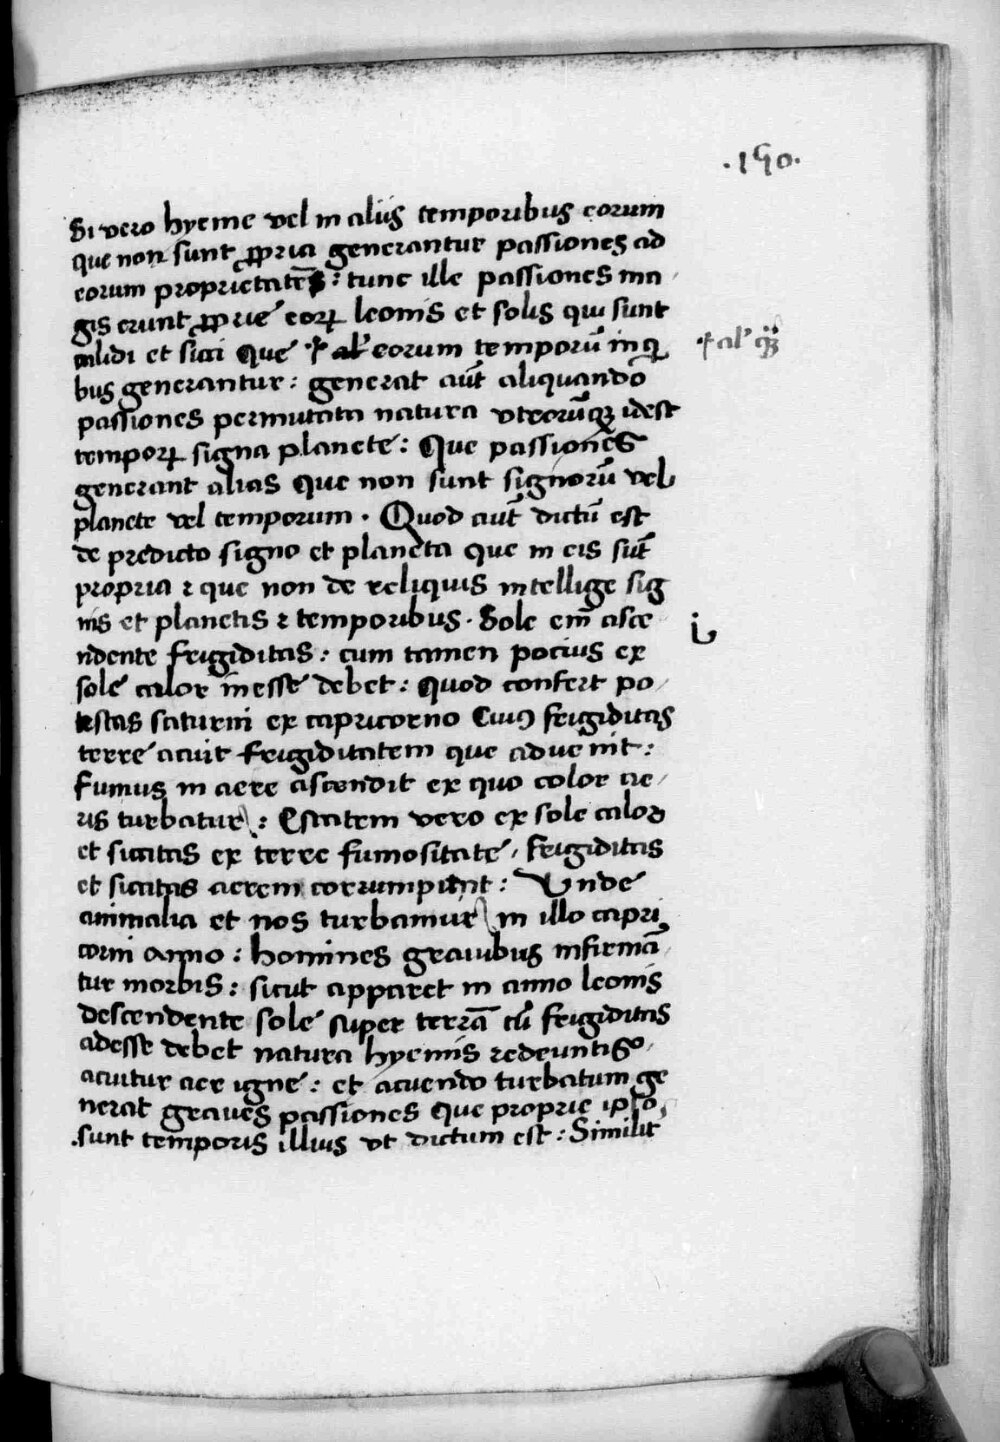 .150.
Si vero hyeme vel in aliis temporibus eorum
que non sunt ꝓpria generantur passiones ad
eorum proprietates : tunc ille passiones ma
gis erunt ꝓprie eoꝝ leonis et solis qui sunt
calidi et sicci que al' eorum temporū in qͥ
al' qꝫ
bus generantur : generat aūt aliquando
passiones permutata natura vtrorūqꝫ idest
tempoꝝ signa planete : Que passiones
generant alias que non sunt signorū vel
planete vel temporum . Quod aūt dictū est
de predicto signo et planeta que in eis sūt
propria ⁊ que non de reliquis intellige sig
nis et planetis ⁊ temporibus . Sole em̄ asce
ndente frigiditas : cum tamen pocius ex
sole calor inesse debet : quod confert po
testas saturni ex capricorno Cuiꝰ frigiditas
terre acuit frigiditatem que aduenit :
fumus in aere ascendit ex quo color ae
ris turbatur : Estatem vero ex sole calor
et siccitas ex terre fumositate , frigiditas
et siccitas aerem corrumpunt : Vnde
animalia et nos turbamur in illo capri
corni anno : homines grauibus infirmā
tur morbis : sicut apparet in anno leonis
descendente sole super terrā cū frigiditas
adesse debet natura hyemis redeuntis
acuitur aer igne : et acuendo turbatum ge
nerat graues passiones que proprie ipso
sunt temporis illius vt dictum est : Similit